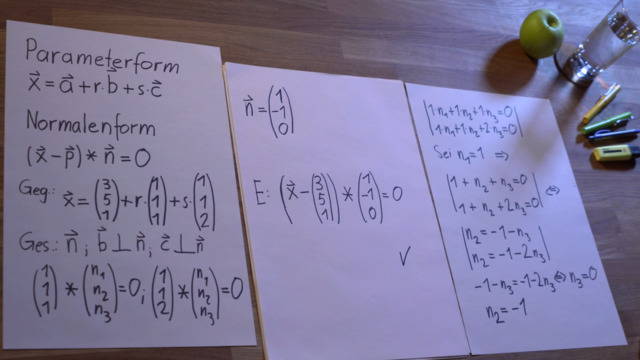 Parameterform
x⃗ = a⃗ + r·b⃗ + s·c⃗
Normalenform
(x⃗ − p⃗) * n⃗ = 0
Geg.: x⃗ = (3 5 1) + r·(1 1 1) + s·(1 1 2)
Ges.: n⃗; b⃗ ⊥ n⃗; c⃗ ⊥ n⃗
(1 1 1) * (n₁ n₂ n₃) = 0; (1 1 2) * (n₁ n₂ n₃) = 0
n⃗ = (1 −1 0)
E: (x⃗ − (3 5 1)) * (1 −1 0) = 0
✓
|1n₁+1n₂+1n₃=0|
|1n₁+1n₂+2n₃=0|
Sei n₁=1 ⇒
|1+n₂+n₃=0| ⇔
|1+n₂+2n₃=0|
|n₂=−1−n₃|
|n₂=−1−2n₃|
−1−n₃=−1−2n₃ ⇔ n₃=0
n₂=−1